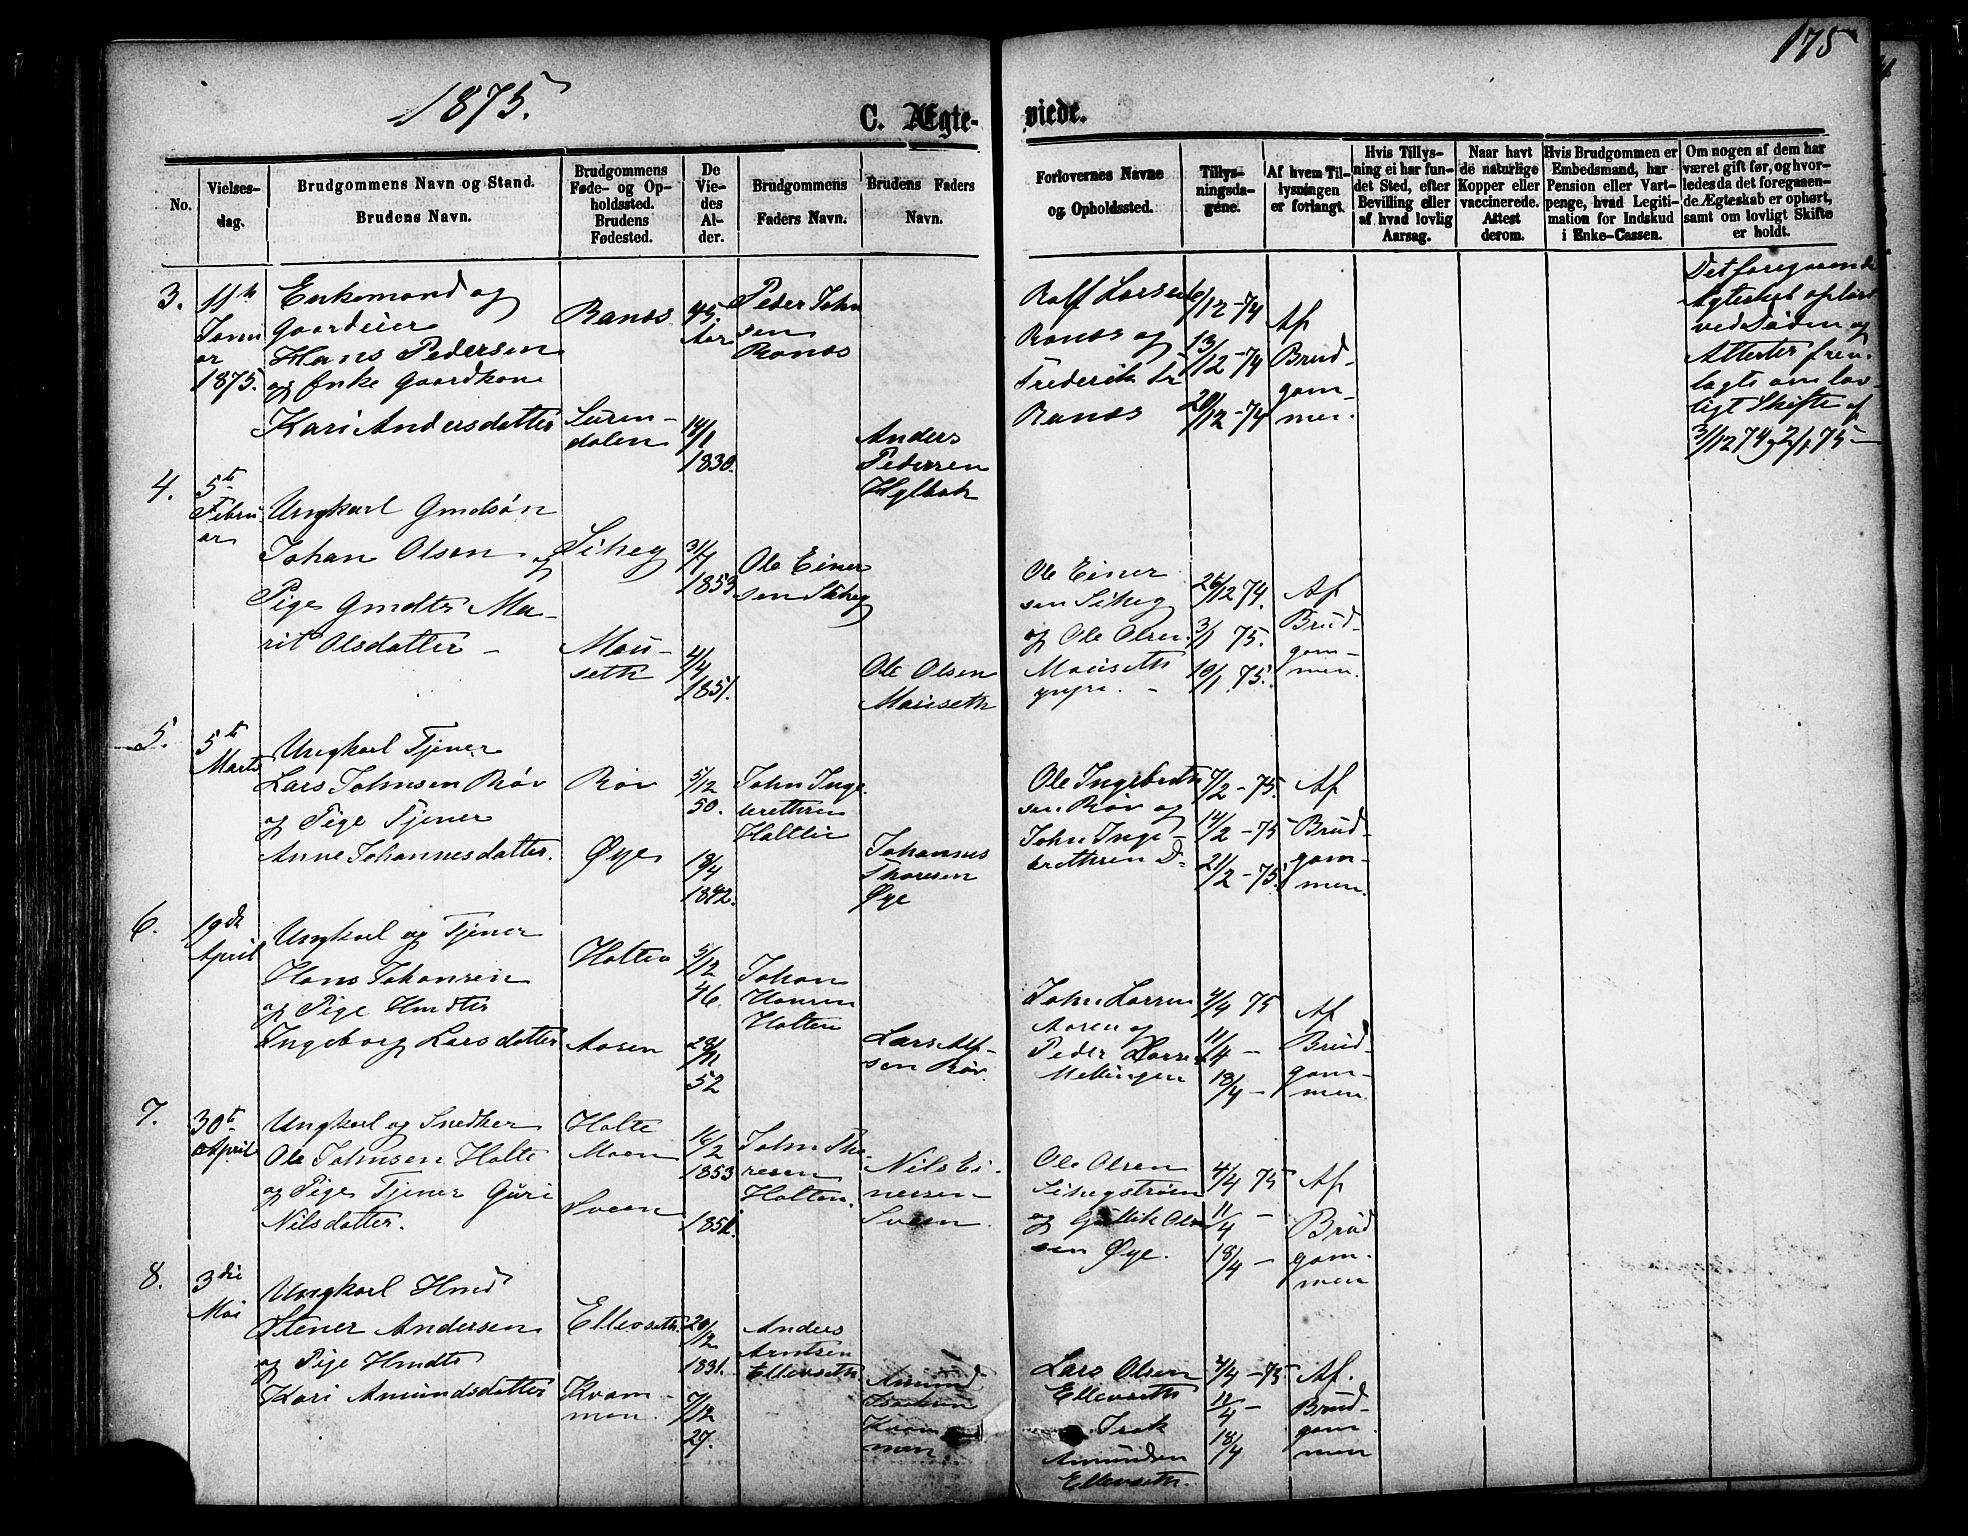 175
1875.
C. Ægte-
viede.
No.
Vielses-
dag.
Brudgommens Navn og Stand.
Brudens Navn.
Brudgommens
Føde- og Op-
holdssted.
Brudens
Fødested.
De
Vie-
des
Al-
der.
Brudgommens
Faders Navn.
Brudens Faders
Navn.
Forlovernes Navne
og Opholdssted.
Tillys-
ningsda-
gene.
Af hvem Til-
lysningen
er forlangt.
Hvis Tillys-
ning ei har fun-
det Sted, efter
Bevilling eller
af hvad lovlig
Aarsag.
Naar havt
de naturlige
Kopper eller
vaccinerede.
Attest
derom.
Hvis Brudgommen er
Embedsmand, har
Pension eller Vart-
penge, hvad Legiti-
mation for Indskud
i Enke-Cassen.
Om nogen af dem har
været gift før, og hvor-
ledes da det foregaaen-
de Ægteskab er ophørt,
samt om lovligt Skifte
er holdt.
3.
11te
Janu
ar
1875.
Enkemand og
Gaardeier
Hans Pedersen
og Enke Gaardkone
Kari Andersdatter
Ranæs
Suren-
dalen
45.
Aar
14/1
1830.
Peder John
sen
Ranæs
Anders
Pedersen
Rolf Larsen
Ranæs og
Frederik
Ranæs
6/12-74
13/12-74
20/12-74
Af
Brud-
gom-
men.
Det foregaaende
Ægteskab ophørt
ved Døden og
Attester frem-
lagte om lov-
ligt Skifte af
3/12 74 og 2/1 75-
4.
5te
Febru
ar
Ungkarl Gmdsøn
Johan Olsen og
Pige Gmdtr Ma-
rit Olsdatter -
Siheg
Mau-
seth
31/7
1853
4/4
1851.
Ole Einer
sen Siheg
Ole Olsen
Mauseth
Ole Einer
sen Siheg
og Ole Olsen
Mauseth
26/12 74.
3/1 75.
10/1 75.
Af
Brud-
gom-
men.
5.
5te
Marts
Ungkarl Tjener
Lars Johnsen Røv
og Pige Tjener
Anne Johannesdatter.
Røv
Øye
5/12
50.
18/4
1842.
John Inge
brethsen
Holtlie
Johannes
Thoresen
Øye
Ole Ingebreth
sen Røv og
John Inge-
brethsen D-
7/2-75.
14/2-75
21/2-75.
Af
Brud-
gom-
men.
6.
19de
April
Ungkarl og Tjener
Hans Johansen
og Pige Hmdtr
Ingeborg Larsdatter
Holten
Aasen
5/12
46.
28/11
52
Johan
Hansen
Holten
Lars Alf-
sen Røv.
John Larsen
Aasen og
Peder Larsen
Mellingen
4/4 75
11/4 -
18/4 -
Af
Brud-
gom-
men
7.
30te
April
Ungkarl og Snedker
Ole Johnsen Holte
og Pige Tjener Guri
Nilsdatter.
Holte
Moen
Sveen
16/2
1853
1851.
John Tho-
resen
Holten.
Nils Ei-
nersen
Sveen
Ole Olsen
Sihegstrøen
og Gullik Ol-
sen Øye.
4/4 75
11/4 -
18/4 -
Af
Brud
gom-
men
8.
3die
Mai
Ungkarl Hmd
Stener Andersen
og Pige Hmdtr
Kari Amundsdatter
Ellevseth.
Kvam-
men.
20/12
1831.
7/12
27.
Anders
Arntsen
Ellevseth.
Amund
Kvam
men
Lars Olsen
Ellevseth
Isak
Amundsen
Ellevseth.
4/4-75
11/4 -
18/4
Af.
Brud-
gom-
men